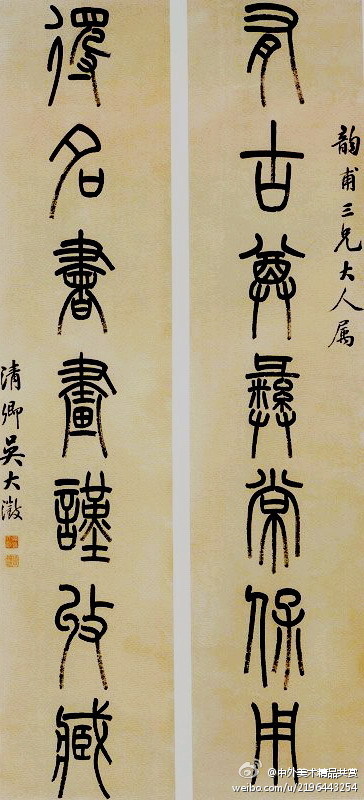 韵甫三兄大人属
有古尊彝常保用
得名書畫謹收臧
清卿吳大澂
@中外美术精品共赏
weibo.com/u/2196443254